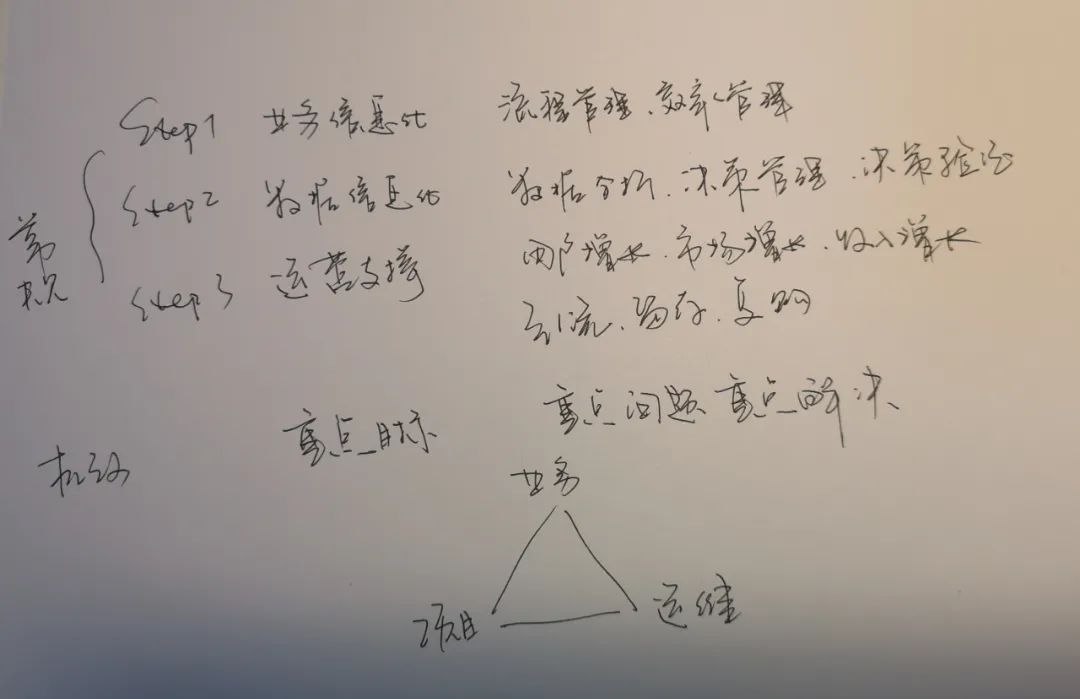 Step1 业务信息化 流程管理、效率管理
Step2 数据信息化 数据分析、决策管理、决策验证
常规
Step3 运营支撑 用户增长、市场增长、收入增长
引流、留存、复购
重点目标 重点问题重点解决
机动
业务
项目 运维